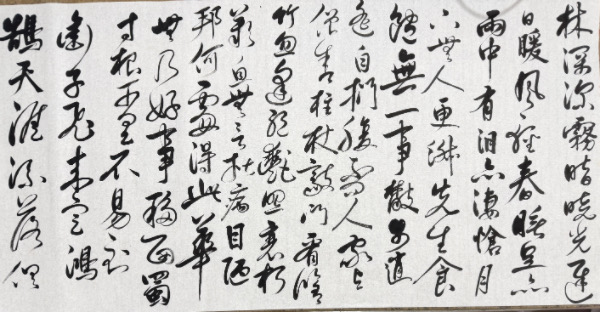 林深深霧暗曉光遲
日暖風輕春睡足
雨中有泪亦凄愴月
下無人更清淑先生食
飽無一事散步逍
遙自捫腹不問人家與
僧舍柱杖敲門看脩
竹忽逢絕艷照衰朽
歎息無言揩病目陋
邦何處得此華
無乃好事移西蜀
寸根千里不易到
銜子飛來定鴻
鵠天涯流落俱